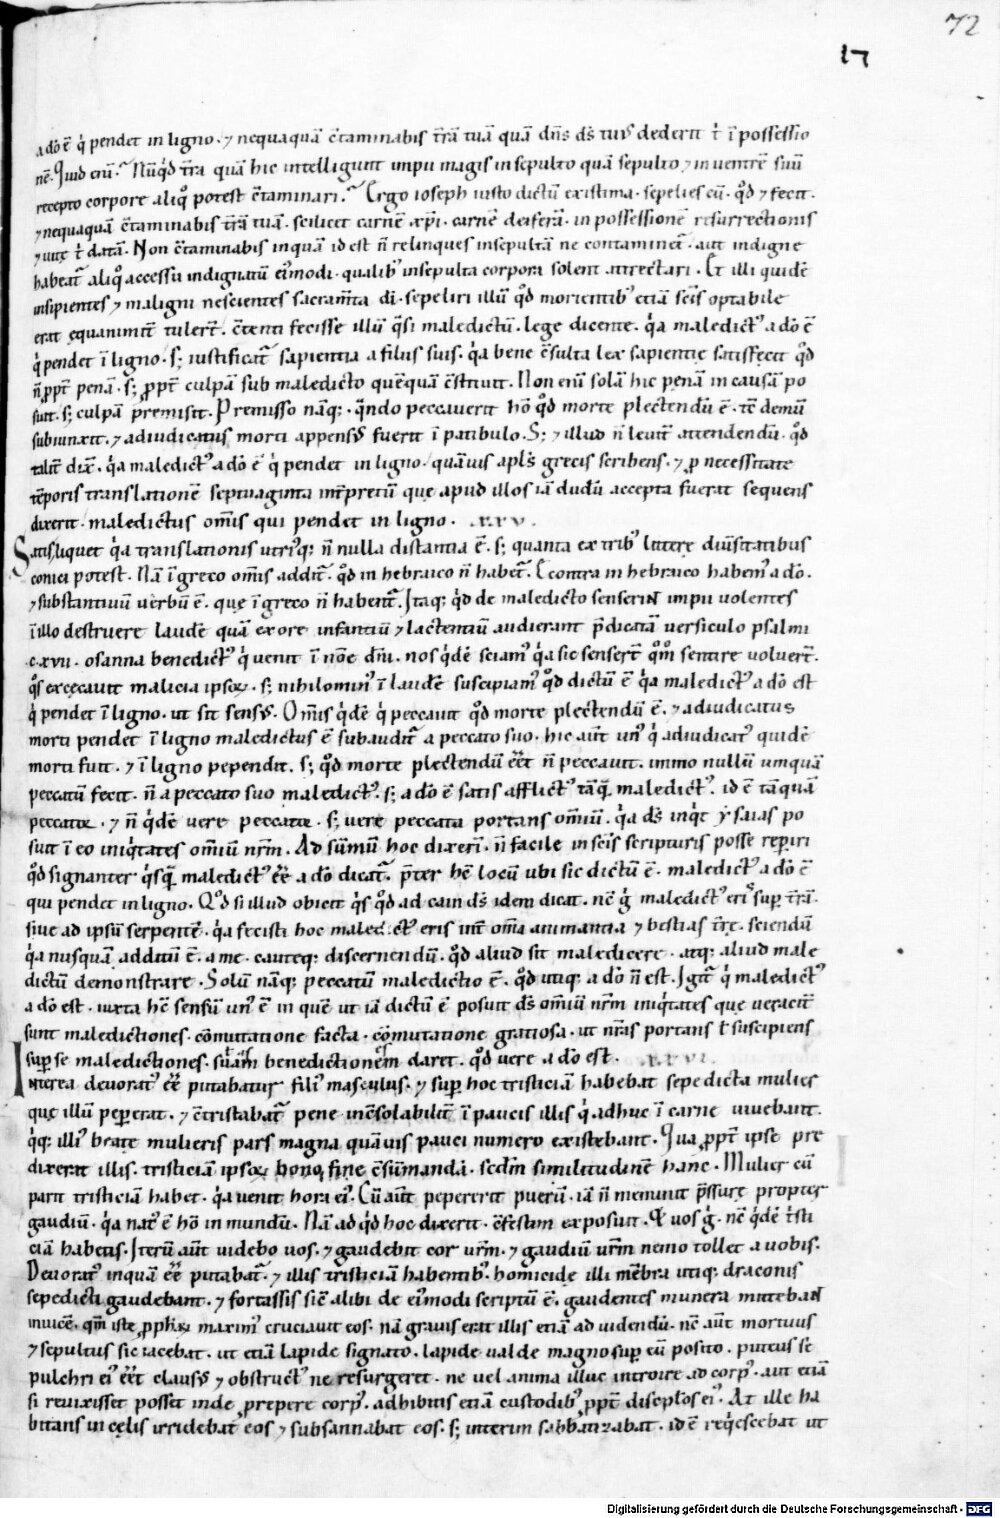 72
17
a dō ē q̇ pendet in ligno. ⁊ nequaquā c̄taminabis t̄rā tuā quā dn̄s ds̄ tuꝰ dederit t̄ ī possessio
nē. Quid eni᷒. Nūq̇d t̄ra quā hic intelligunt impii magis insepulto quā sepulto ⁊ in ventrē suū
recepto corpore aliq̊ potest c̄taminari. Ergo ioseph iusto dictū existima. sepelies eū. q̊d ⁊ fecit.
⁊ nequaquā c̄taminabis t̄rā tuā. scilicet carnē xp̄i. carnē deiferā. in possessionē resurrectionis
⁊ vitę t̄ datā. Non c̄taminabis inquā id est n̄ relinques insepultā ne contaminet᷒. aut indigne
habeat᷒ aliq̊ accessu indignatū eiꝰmodi. qualibꝰ insepulta corpora solent attrectari. Et illi quidē
insipientes ⁊ maligni nescientes sacram̄ta di̅. sepeliri illū q̊d morientibꝰ etiā sc̄is optabile
erat ęquanimit̄ tuler̄t. c̄tenti fecisse illū q̇si maledictū. lege dicente. q̇a maledictꝰ a dō ē
q̇ pendet ī ligno. s; iustificat᷒ sapientia a filiis suis. q̇a bene c̄sulta lex sapientię satisfecit q̊d
n̄ ꝓpt̄ penā. s; ꝓpt̄ culpā sub maledicto quēquā c̄stituit. Non eni᷒ solā hic penā in causā po
suit. s; culpā p̄misit. Premisso nāq;. q̇ndo peccaverit hō q̊d morte plectendū ē. tc̄ demū
subiunxit. ⁊ adiudicatus morti appensꝰ fuerit ī patibulo. S; ⁊ illud n̄ levit̄ attendendū. q̊d
talit̄ dix̄. q̇a maledictꝰ a dō ē q̇ pendet in ligno. quāvis apls̄ grecis scribens. ⁊ ꝓ necessitate
tēporis translationē septuaginta int̄pretū quę apud illos iā dudū accepta fuerat sequens
dixerit. maledictus om̄is qui pendet in ligno. .xxv.
Satis liquet q̇a translationis utriꝰq; n̄ nulla distantia ē. s; quanta ex tribꝰ litterę div̄sitatibus
conici potest. Nā ī greco om̄is addit᷒. q̊d in hebraico n̄ habet᷒. Econtra in hebraico habemꝰ a dō.
⁊ substantivū verbū ē. quę ī greco n̄ habent᷒. Itaq; q̇d de maledicto senserint impii volentes
ī illo destruere laudē quā ex ore infantiū ⁊ lactentiū audierant p̄dicatā versiculo psalmi
.cxvii. osanna benedictꝰ q̇ venit ī noē dn̄i. nos q̇dē sciamꝰ q̇a sic senser̄t q̊m̊ sentire voluer̄t.
q̊s excęcavit malicia ipsoꝝ. s; nihilominꝰ ī laudē suscipiamꝰ q̊d dictū ē q̇a maledictꝰ a dō est
q̇ pendet ī ligno. ut sit sensꝰ. Om̄is q̇dē q̇ peccavit q̊d morte plectendū ē. ⁊ adiudicatus
morti pendet ī ligno maledictus ē subaudit᷒ a peccato suo. hic aut̄ unꝰ q̇ adiudicatꝰ quidē
morti fuit. ⁊ ī ligno pependit. s; q̊d morte plectendū eēt n̄ peccavit. immo nullū umquā
peccatū fecit. n̄ a peccato suo maledictꝰ. s; a dō ē satis afflictꝰ tāq̄ maledictꝰ. id ē tāquā
peccatoꝛ. ⁊ n̄ q̇dē vere peccatoꝛ. s; vere peccata portans omniū. q̇a ds̄ inq̇t ysaias po
suit ī eo iniq̇tates omniū nr̄m. Ad summū hoc dixeri᷒. n̄ facile in sc̄is scripturis posse repiri
q̊d signanter q̇sq̄ maledictꝰ eē a dō dicat᷒. p̄ter hc̄ locū ubi sic dictū ē. maledictꝰ a dō ē
qui pendet in ligno. Q̊d si illud obicit q̇s q̊d ad cain ds̄ idem dicat. nc̄ g̊ maledictꝰ eris sup t̄rā.
sive ad ipsū serpentē. q̇a fecisti hoc maledictꝰ eris int̄ om̄ia animantia ⁊ bestias t̄rę. sciendū
q̇a nusquā additū ē. a me. cauteq; discernendū. q̊d aliud sit maledicere. atq; aliud male
dictū demonstrare. Solū nāq; peccatū maledictio ē. q̊d utiq; a dō n̄ est. Igit᷒ q̇ maledictꝰ
a dō est. iuxta hc̄ sensū unꝰ ē in quē ut iā dictū ē posuit ds̄ omniū nr̄m iniq̇tates quę veracit̄
sunt maledictiones. cōmutatione facta. cōmutatione gratiosa. ut nr̄as portans t̄ suscipiens
sup se maledictiones. suam benedictionem daret. q̊d vere a dō est. .xxvi.
Interea devoratꝰ eē putabatur filiꝰ masculus. ⁊ sup hoc tristiciā habebat sepedicta mulier
quę illū pepererat. ⁊ c̄tristabat᷒ pene incōsolabilit̄ ī paucis illis q̇ adhuc ī carne vivebant.
q̇q; illiꝰ beatę mulieris pars magna quāvis pauci numero existebant. Qua ꝓpt̄ ipse pre
dixerat illis. tristiciā ipsoꝝ bono fine c̄sūmandā. scdm̄ similitudinē hanc. Mulier cū
parit tristiciā habet. q̇a venit hora eiꝰ. Cū aut̄ pepererit puerū. iā n̄ meminit p̄ssurę propter
gaudiū. q̇a natꝰ ē hō in mundū. Nā ad q̇d hoc dixerit. c̄festim exposuit. Et vos g̊. nc̄ q̇dē tristi
ciā habetis. Iterū aut̄ videbo vos. ⁊ gaudebit cor vr̄m. ⁊ gaudiū vr̄m nemo tollet a vobis.
Devoratꝰ inquā eē putabat᷒. ⁊ illis tristiciā habentibꝰ. homicidę illi mēbra utiq; draconis
sepedicti gaudebant. ⁊ fortassis sic̄ alibi de eiꝰmodi scriptū ē. gaudentes munera mittebant
invicē. qm̄ iste ꝓph̄a maximꝰ cruciavit eos. nā gravis erat illis etiā ad videndū. nc̄ aut̄ mortuus
⁊ sepultus sic iacebat. ut etiā lapide signato. lapide valde magno sup eū posito. puteus se
pulchri eiꝰ eēt clausꝰ ⁊ obstructꝰ ne resurgeret. ne vel anima illuc introire ad corpꝰ. aut etiā
si revixisset posset inde ꝓrepere corpꝰ. adhibitis etiā custodibꝰ ꝓpt̄ discipl̄os eiꝰ. At ille ha
bitans in cęlis irridebat eos ⁊ subsannabat eos. s; interim sabbatizabat. id ē req̇escebat ut
Digitalisierung gefördert durch die Deutsche Forschungsgemeinschaft - DFG